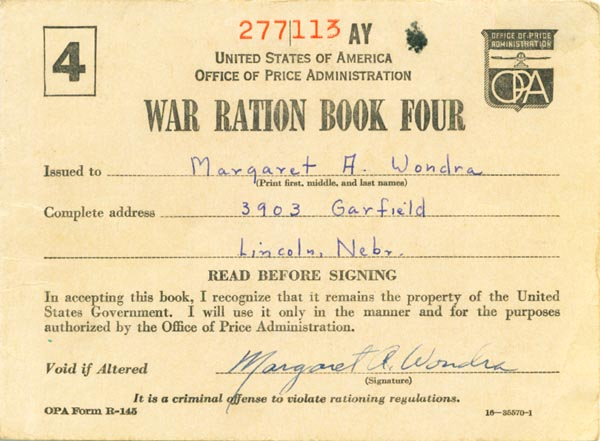 277113 AY
4
OFFICE OF PRICE
ADMINISTRATION
OPA
UNITED STATES OF AMERICA
OFFICE OF PRICE ADMINISTRATION
WAR RATION BOOK FOUR
Issued to Margaret A. Wondra
(Print first, middle, and last names)
Complete address 3903 Garfield
Lincoln, Nebr.
READ BEFORE SIGNING
In accepting this book, I recognize that it remains the property of the United
States Government. I will use it only in the manner and for the purposes
authorized by the Office of Price Administration.
Void if Altered Margaret A. Wondra
(Signature)
It is a criminal offense to violate rationing regulations.
OPA Form R-145 16—35570-1